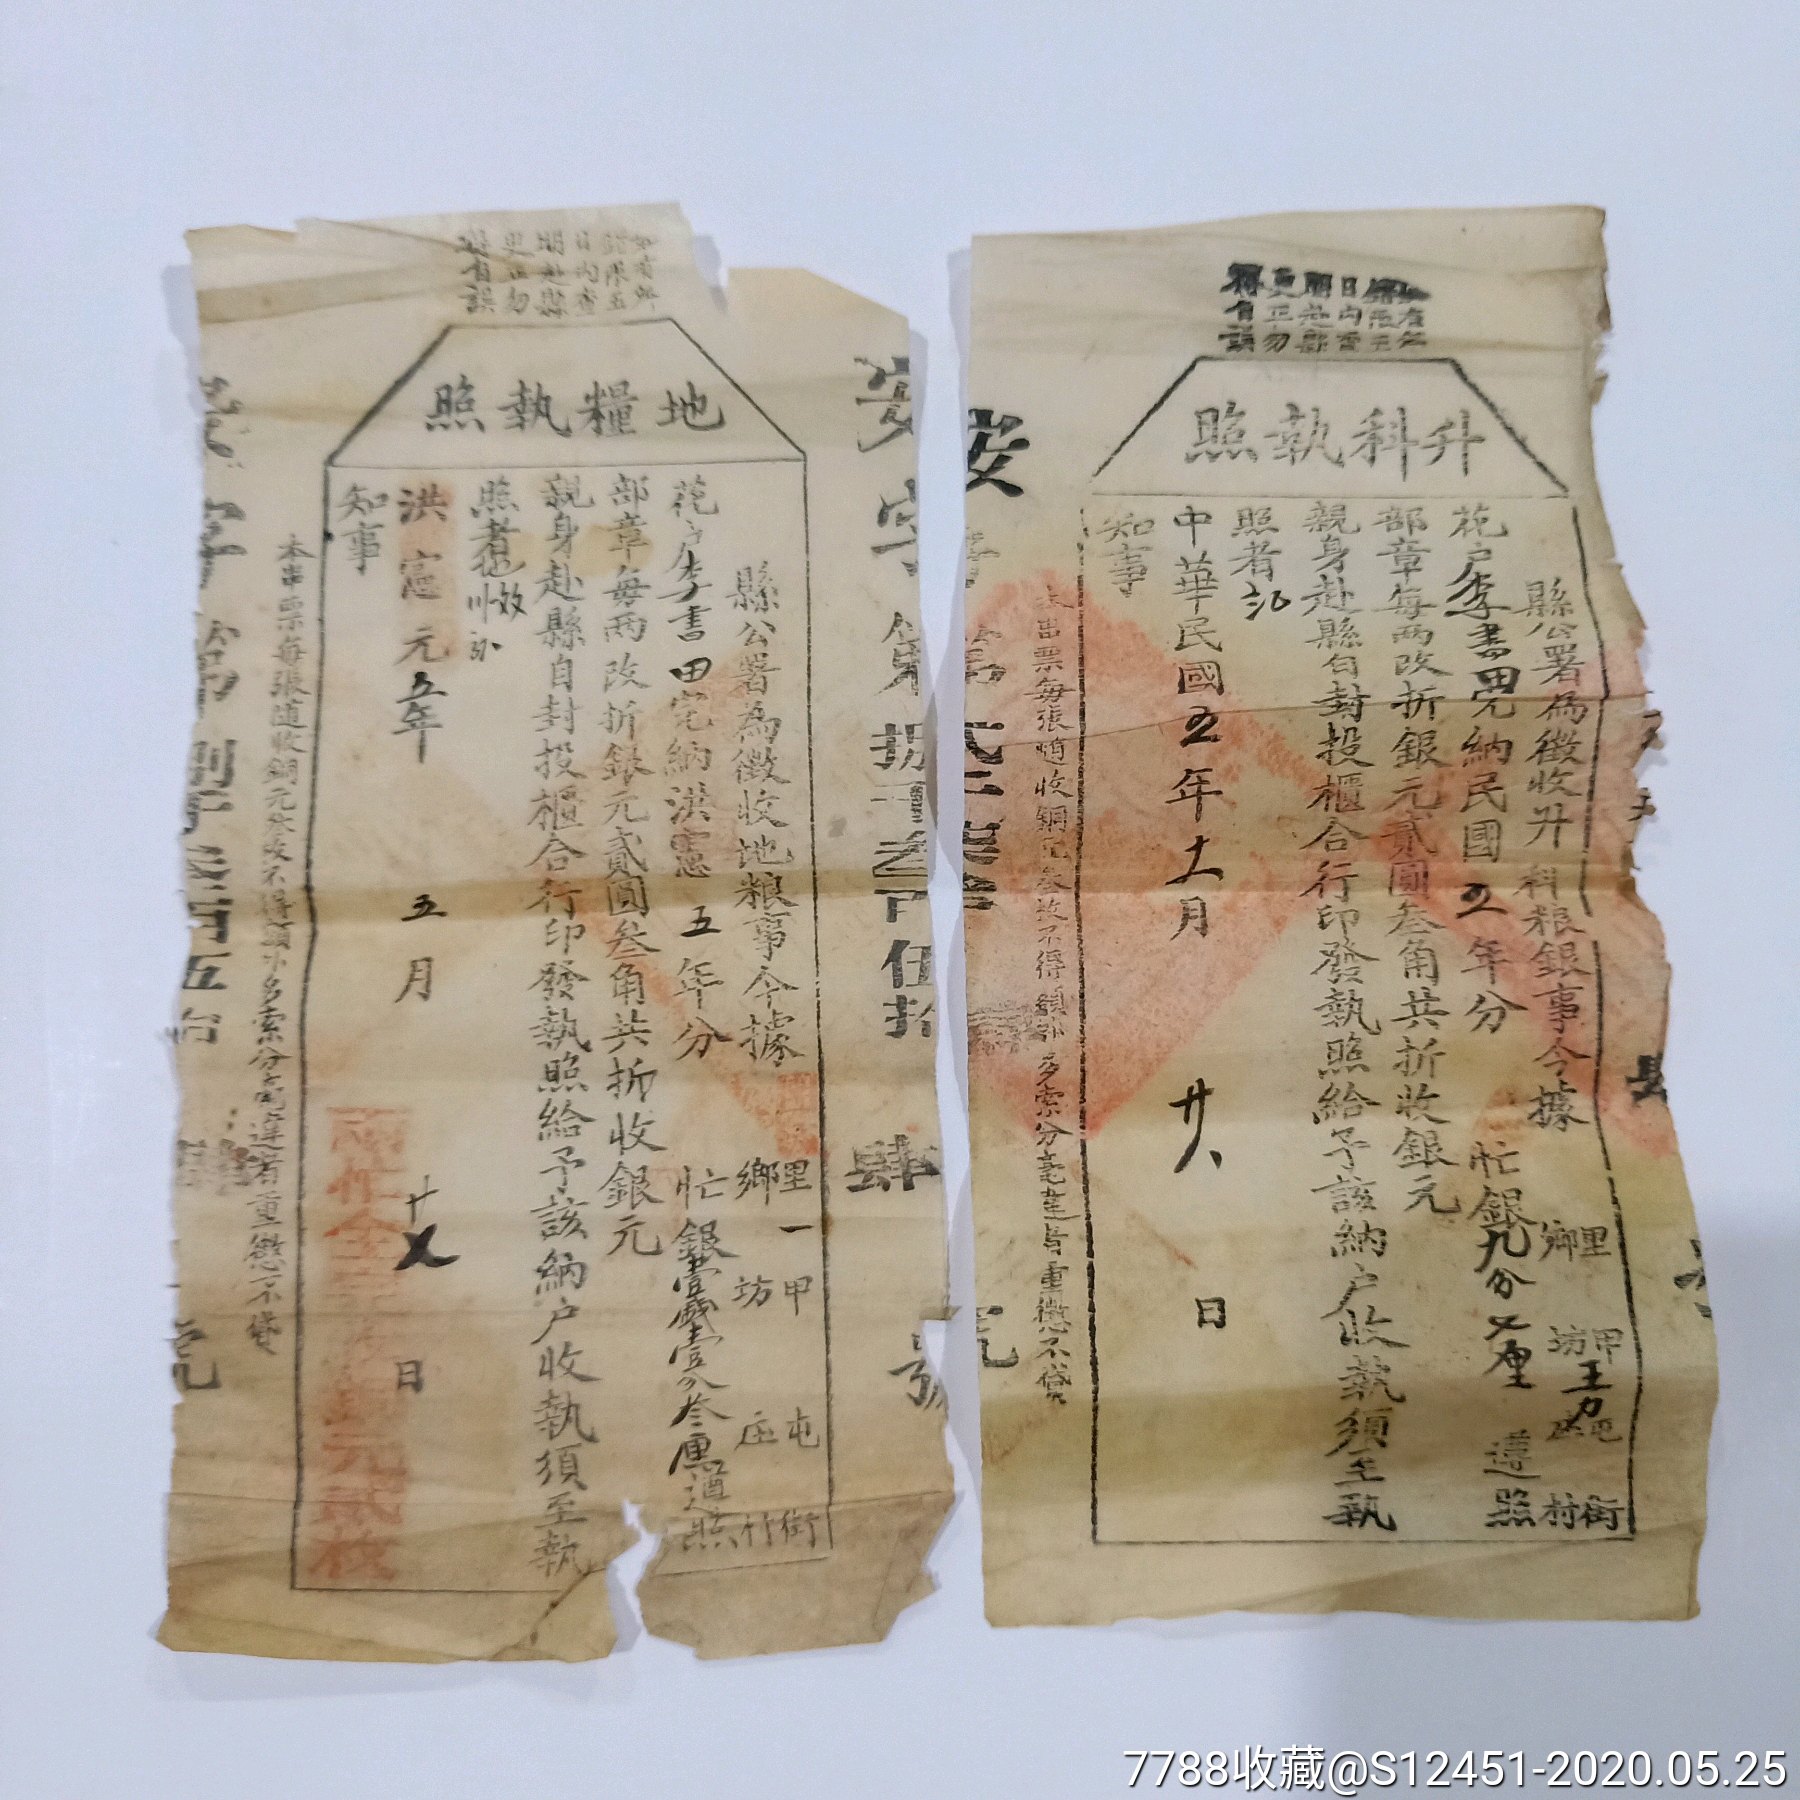 如有舛
錯限五
日内查
明赴縣
更正勿
得自誤
地糧執照
縣公署為徵收地粮事今據
里一甲 屯 街
鄉 坊 庄 村
花户李書田完納洪憲五年分 忙銀壹錢壹分叁厘遵照
部章每兩改折銀元貳圓叁角共折收銀元
親身赴縣自封投櫃合行印發執照給予該納户收執須至執
照者
洪憲元五年 五月 日
知事
本串票每張隨收銅元叁枚不得額外多索分毫違者重懲不貸
安字第
肆
號
如有舛
錯限五
日内查
明赴縣
更正勿
得自誤
升科執照
縣公署為徵收升科粮銀事今據
里 甲 屯 街
鄉 坊 庄 村
王
花户李書田完納民國五年分 忙銀九分 厘 遵照
部章每兩改折銀元貳圓叁角共折收銀元
親身赴縣自封投櫃合行印發執照給予該納户收執須至執
照者
中華民國五年十一月廿八日
知事
本串票每張隨收銅元叁枚不得額外多索分毫違者重懲不貸
安字第
號
7788收藏@S12451-2020.05.25